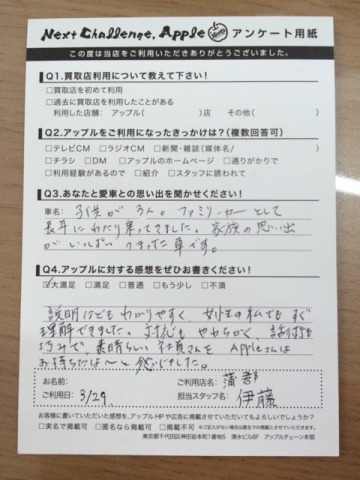 Next Challenge, Apple アンケート用紙
この度は当店をご利用いただきありがとうございました。
Q1.買取店利用について教えて下さい!
□買取店を初めて利用
□過去に買取店を利用したことがある
利用した店舗： アップル( )店 その他( )
Q2.アップルをご利用になったきっかけは?(複数回答可)
□テレビCM □ラジオCM □新聞・雑誌(媒体名/ )
□チラシ □DM □アップルのホームページ □通りがかりで
□利用経験があるので □紹介 □スタッフに誘われて
Q3.あなたと愛車との思い出を聞かせください!
車名: 子供が3人。ファミリーカーとして
長年にわたり乗ってきました。家族の思い出
がいっぱいつまった車です。
Q4.アップルに対する感想をぜひお書きください!
☑大満足 □満足 □普通 □もう少し □不満
説明はとてもわかりやすく、女性の私でもすぐ
理解できました。対応もやわらかく、話術も
巧みで、素晴らしい社員さんを Appleさんは
お持ちだな〜と感じました。
お名前: ご利用店名: 蒲郡
ご利用日: 3/29 担当スタッフ名: 伊藤
お客様に書いていただいた感想を、アップルHPや広告に掲載させていただいてもよろしいでしょうか?
□実名で掲載可 □匿名なら掲載可 □掲載不可 ※ご記入がない場合は匿名での掲載とさせていただきます。
東京都千代田区神田岩本町1番地5 清水ビル6F アップルチェーン本部